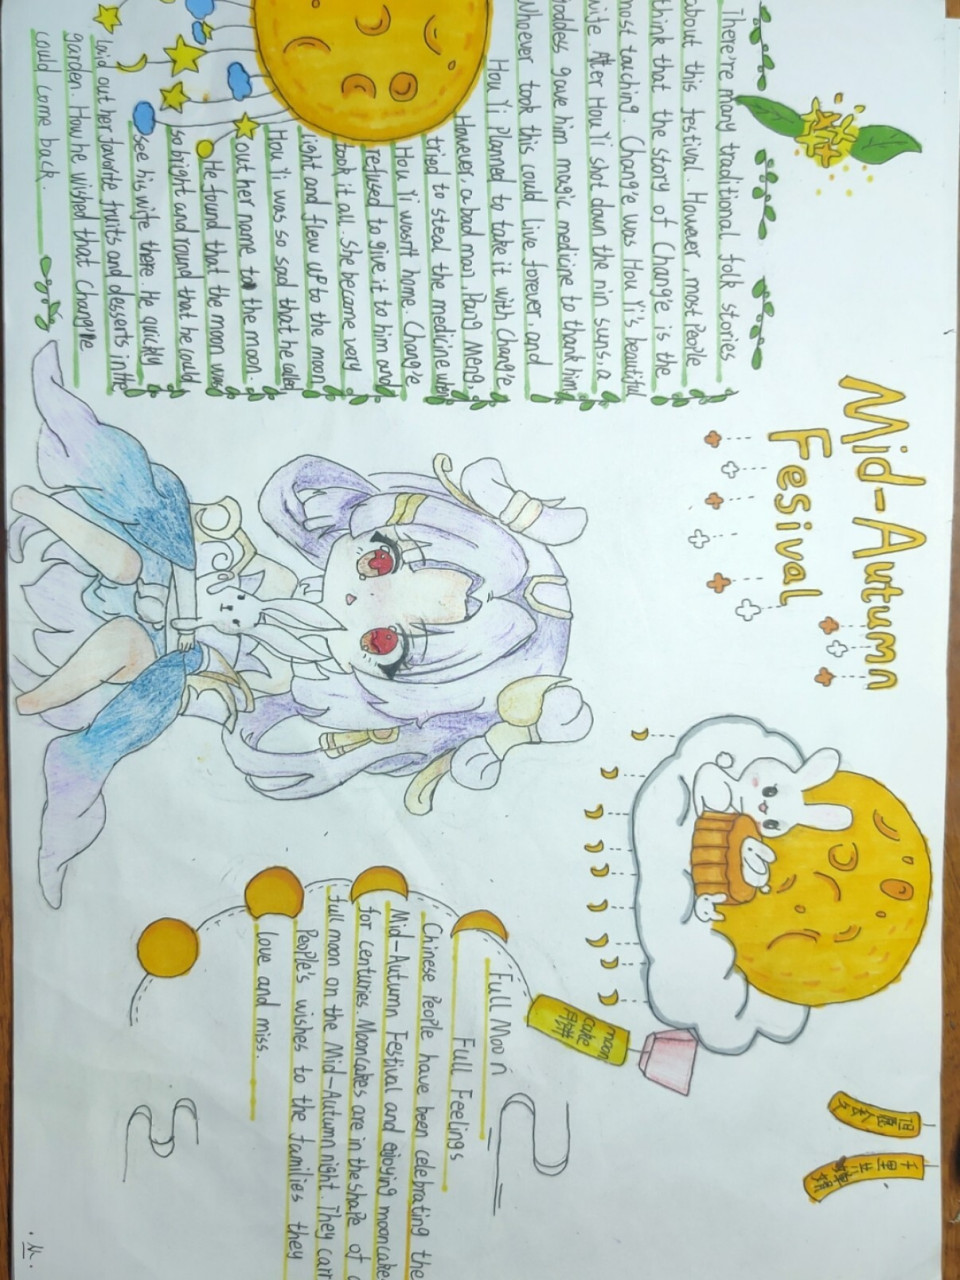 Mid-Autumn
Fesival
There're many traditional folk stories
about this festival. However, most People
think that the story of Chang'e is the
most touching. Chang'e was Hou Yi's beautiful
wife. After Hou Yi shot down the nin suns, a
goddes gave him magic medicine to thank him
Whoever took this could live forever, and
Hou Yi Planned to take it with Chang'e
However, a bad man, Pang Meng,
tried to steal the medicine when
Hou Yi wasn't home. Chang'e
refused to give it to him and
took it all. She became very
light and flew up to the moon
Hou Yi was so sad that he called
out her name to the moon.
He found that the moon was
so bright and round that he could
see his wife there. He quickly
laid out her favorite fruits and desserts in the
garden. How he wished that Chang'e
could come back.
但愿
人
千里共
moon
cake
月饼
Full Moon
Full Feelings
Chinese People have been celebrating the
Mid-Autumn Festival and enjoying mooncake
for centuries. Mooncakes are in the shape of a
full moon on the Mid-Autumn night. They carr
People's wishes to the families they
love and miss.